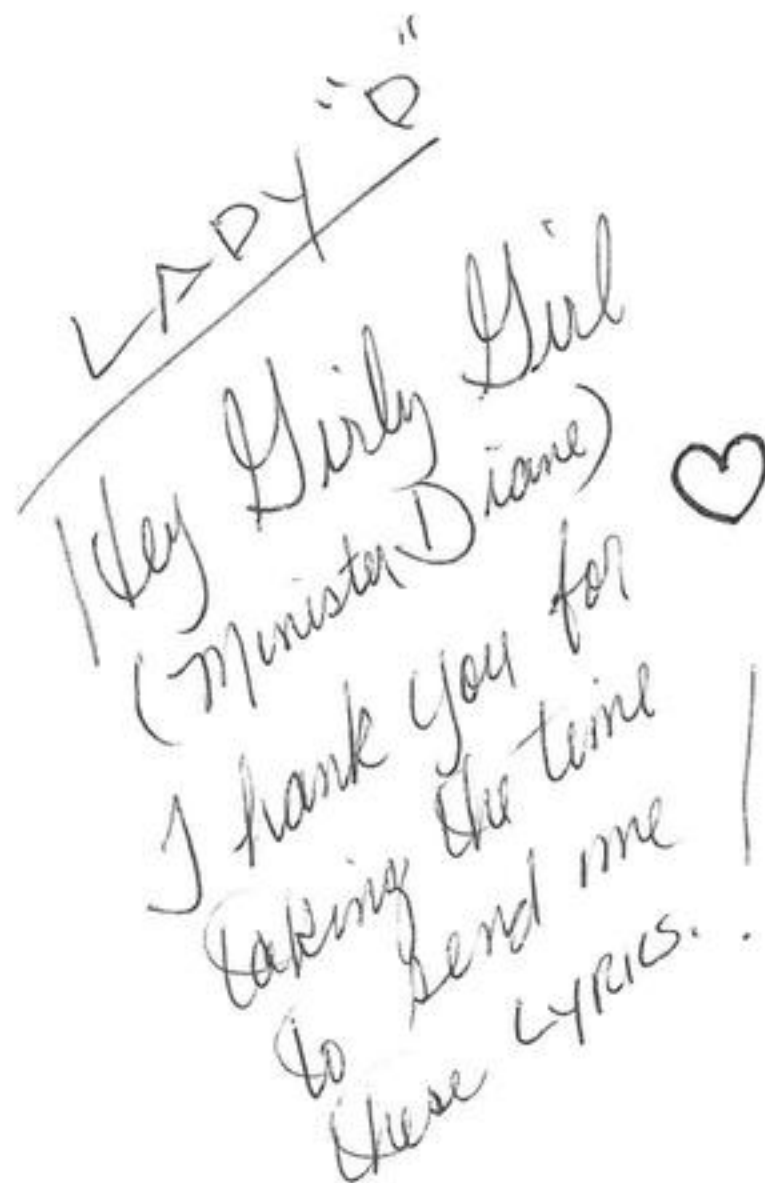 LADY "D"
Hey Girly Girl
(Minister Diane)
Thank you for
taking the time
to send me
these LYRICS. !